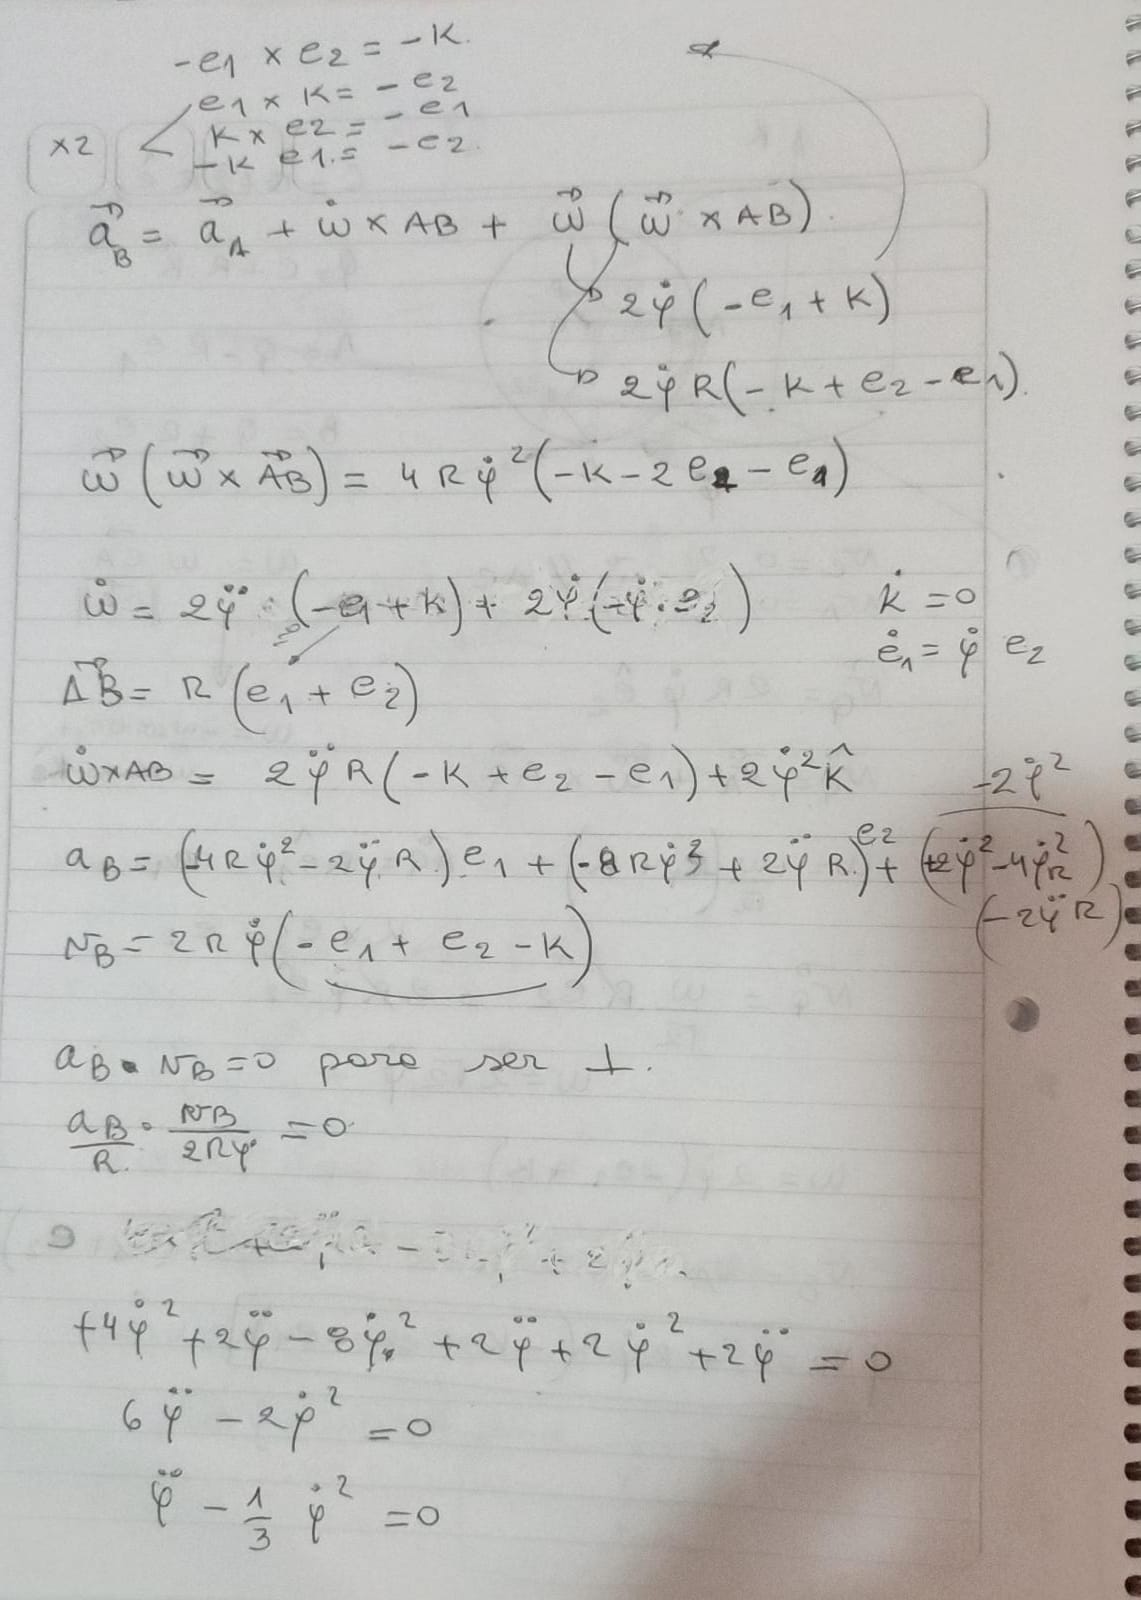 -e1 × e2 = -K.
e1 × K = -e2
K × e2 = -e1
×2
-K e1 = -e2.
a⃗B = a⃗A + ẇ × AB + w⃗ (w⃗ × AB)
2φ̇ (-e1 + K)
2φ̇ R(-K + e2 - e1).
w⃗ (w⃗ × A⃗B) = 4Rφ̇² (-K - 2e2 - e1)
ẇ = 2φ̈ (-e1 + K) + 2φ̇ (-φ̇ · e2)
K̇ = 0
ė1 = φ̇ e2
A⃗B = R (e1 + e2)
ẇ×AB = 2φ̈R(-K + e2 - e1) + 2φ̇² K̂
-2φ̇²
aB = (-4Rφ̇² - 2φ̈R) e1 + (-8Rφ̇² + 2φ̈R) e2 + (+2φ̇² - 4φ̇²R)
(-2φ̈R)
NB = 2Rφ̇(-e1 + e2 - K)
aB · NB = 0 para ser ⊥.
aB/R · NB/2Rφ̇ = 0
+4φ̇² + 2φ̈ - 8φ̇² + 2φ̈ + 2φ̇² + 2φ̈ = 0
6φ̈ - 2φ̇² = 0
φ̈ - 1/3 φ̇² = 0